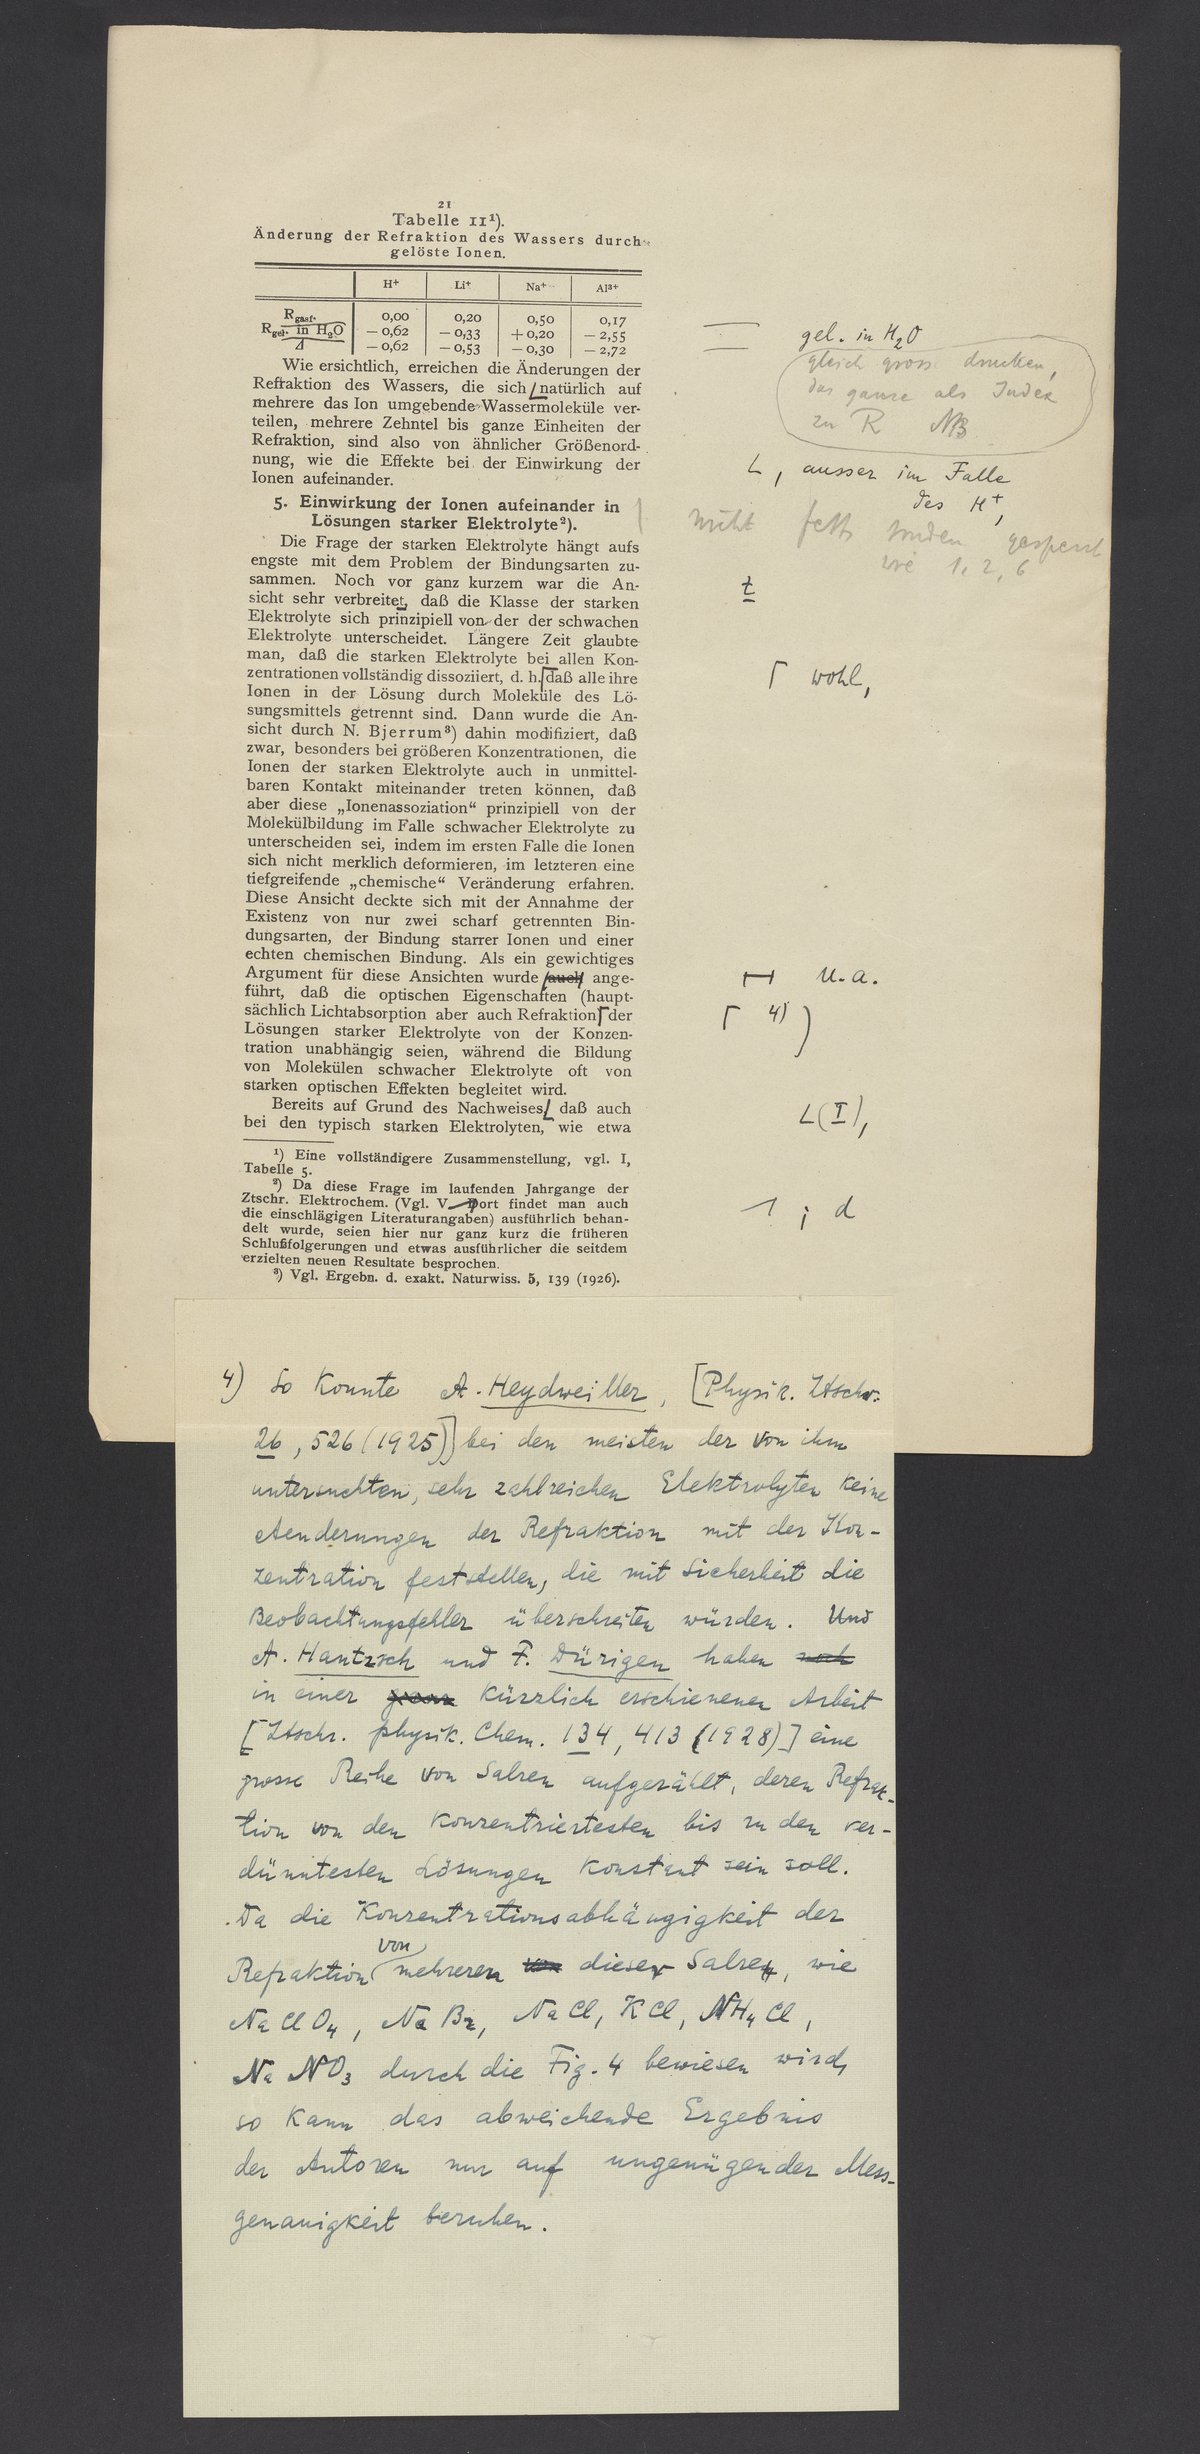 21
Tabelle 11¹).
Änderung der Refraktion des Wassers durch
gelöste Ionen.
H⁺ Li⁺ Na⁺ Al³⁺
R gasf. 0,00 0,20 0,50 0,17
R gel. in H₂O — 0,62 — 0,33 + 0,20 — 2,55
Δ — 0,62 — 0,53 — 0,30 — 2,72
Wie ersichtlich, erreichen die Änderungen der
Refraktion des Wassers, die sich natürlich auf
mehrere das Ion umgebende Wassermoleküle ver-
teilen, mehrere Zehntel bis ganze Einheiten der
Refraktion, sind also von ähnlicher Größenord-
nung, wie die Effekte bei der Einwirkung der
Ionen aufeinander.
5. Einwirkung der Ionen aufeinander in
Lösungen starker Elektrolyte²).
Die Frage der starken Elektrolyte hängt aufs
engste mit dem Problem der Bindungsarten zu-
sammen. Noch vor ganz kurzem war die An-
sicht sehr verbreitet, daß die Klasse der starken
Elektrolyte sich prinzipiell von der der schwachen
Elektrolyte unterscheidet. Längere Zeit glaubte
man, daß die starken Elektrolyte bei allen Kon-
zentrationen vollständig dissoziiert, d. h. daß alle ihre
Ionen in der Lösung durch Moleküle des Lö-
sungsmittels getrennt sind. Dann wurde die An-
sicht durch N. Bjerrum³) dahin modifiziert, daß
zwar, besonders bei größeren Konzentrationen, die
Ionen der starken Elektrolyte auch in unmittel-
baren Kontakt miteinander treten können, daß
aber diese „Ionenassoziation“ prinzipiell von der
Molekülbildung im Falle schwacher Elektrolyte zu
unterscheiden sei, indem im ersten Falle die Ionen
sich nicht merklich deformieren, im letzteren eine
tiefgreifende „chemische“ Veränderung erfahren.
Diese Ansicht deckte sich mit der Annahme der
Existenz von nur zwei scharf getrennten Bin-
dungsarten, der Bindung starrer Ionen und einer
echten chemischen Bindung. Als ein gewichtiges
Argument für diese Ansichten wurde auch ange-
führt, daß die optischen Eigenschaften (haupt-
sächlich Lichtabsorption aber auch Refraktion der
Lösungen starker Elektrolyte von der Konzen-
tration unabhängig seien, während die Bildung
von Molekülen schwacher Elektrolyte oft von
starken optischen Effekten begleitet wird.
Bereits auf Grund des Nachweises daß auch
bei den typisch starken Elektrolyten, wie etwa
¹) Eine vollständigere Zusammenstellung, vgl. I,
Tabelle 5.
²) Da diese Frage im laufenden Jahrgange der
Ztschr. Elektrochem. (Vgl. V. Dort findet man auch
die einschlägigen Literaturangaben) ausführlich behan-
delt wurde, seien hier nur ganz kurz die früheren
Schlußfolgerungen und etwas ausführlicher die seitdem
erzielten neuen Resultate besprochen.
³) Vgl. Ergebn. d. exakt. Naturwiss. 5, 139 (1926).
gel. in H₂O
gleich gross drucken,
das ganze als Index
zu R NB
, ausser im Falle
des H⁺,
nicht fett sondern gesperrt
wie 1, 2, 6
t
wohl,
u. a.
4) )
(I),
; d
4) So konnte A. Heydweiller, [Physik. Ztschr.
26, 526 (1925)] bei den meisten der von ihm
untersuchten, sehr zahlreichen Elektrolyten keine
Aenderungen der Refraktion mit der Kon-
zentration feststellen, die mit Sicherheit die
Beobachtungsfehler überschreiten würden. Und
A. Hantzsch und F. Dürigen haben noch
in einer kürzlich erschienenen Arbeit
[Ztschr. physik. Chem. 134, 413 (1928)] eine
grosse Reihe von Salzen aufgezählt, deren Refrak-
tion von den konzentriertesten bis zu den ver-
dünntesten Lösungen konstant sein soll.
Da die Konzentrationsabhängigkeit der
von
Refraktion mehreren von dieser Salzen, wie
NaClO₄, NaBr, NaCl, KCl, NH₄Cl,
NaNO₃ durch die Fig. 4 bewiesen wird,
so kann das abweichende Ergebnis
der Autoren nur auf ungenügender Mess-
genauigkeit beruhen.